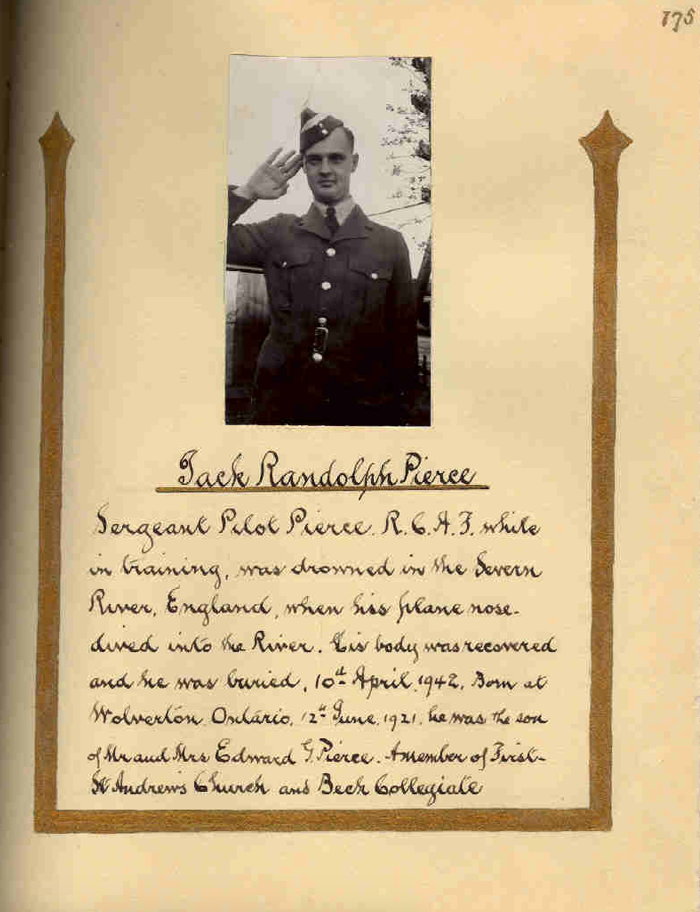 175
Jack Randolph Pierce
Sergeant Pilot Pierce. R.C.A.F. while
in training, was drowned in the Severn
River, England, when his plane nose-
dived into the River. His body was recovered
and he was buried, 10th April, 1942. Born at
Wolverton Ontario, 12th June, 1921, he was the son
of Mr and Mrs Edward G Pierce. A member of First-
St Andrews Church and Beck Collegiate